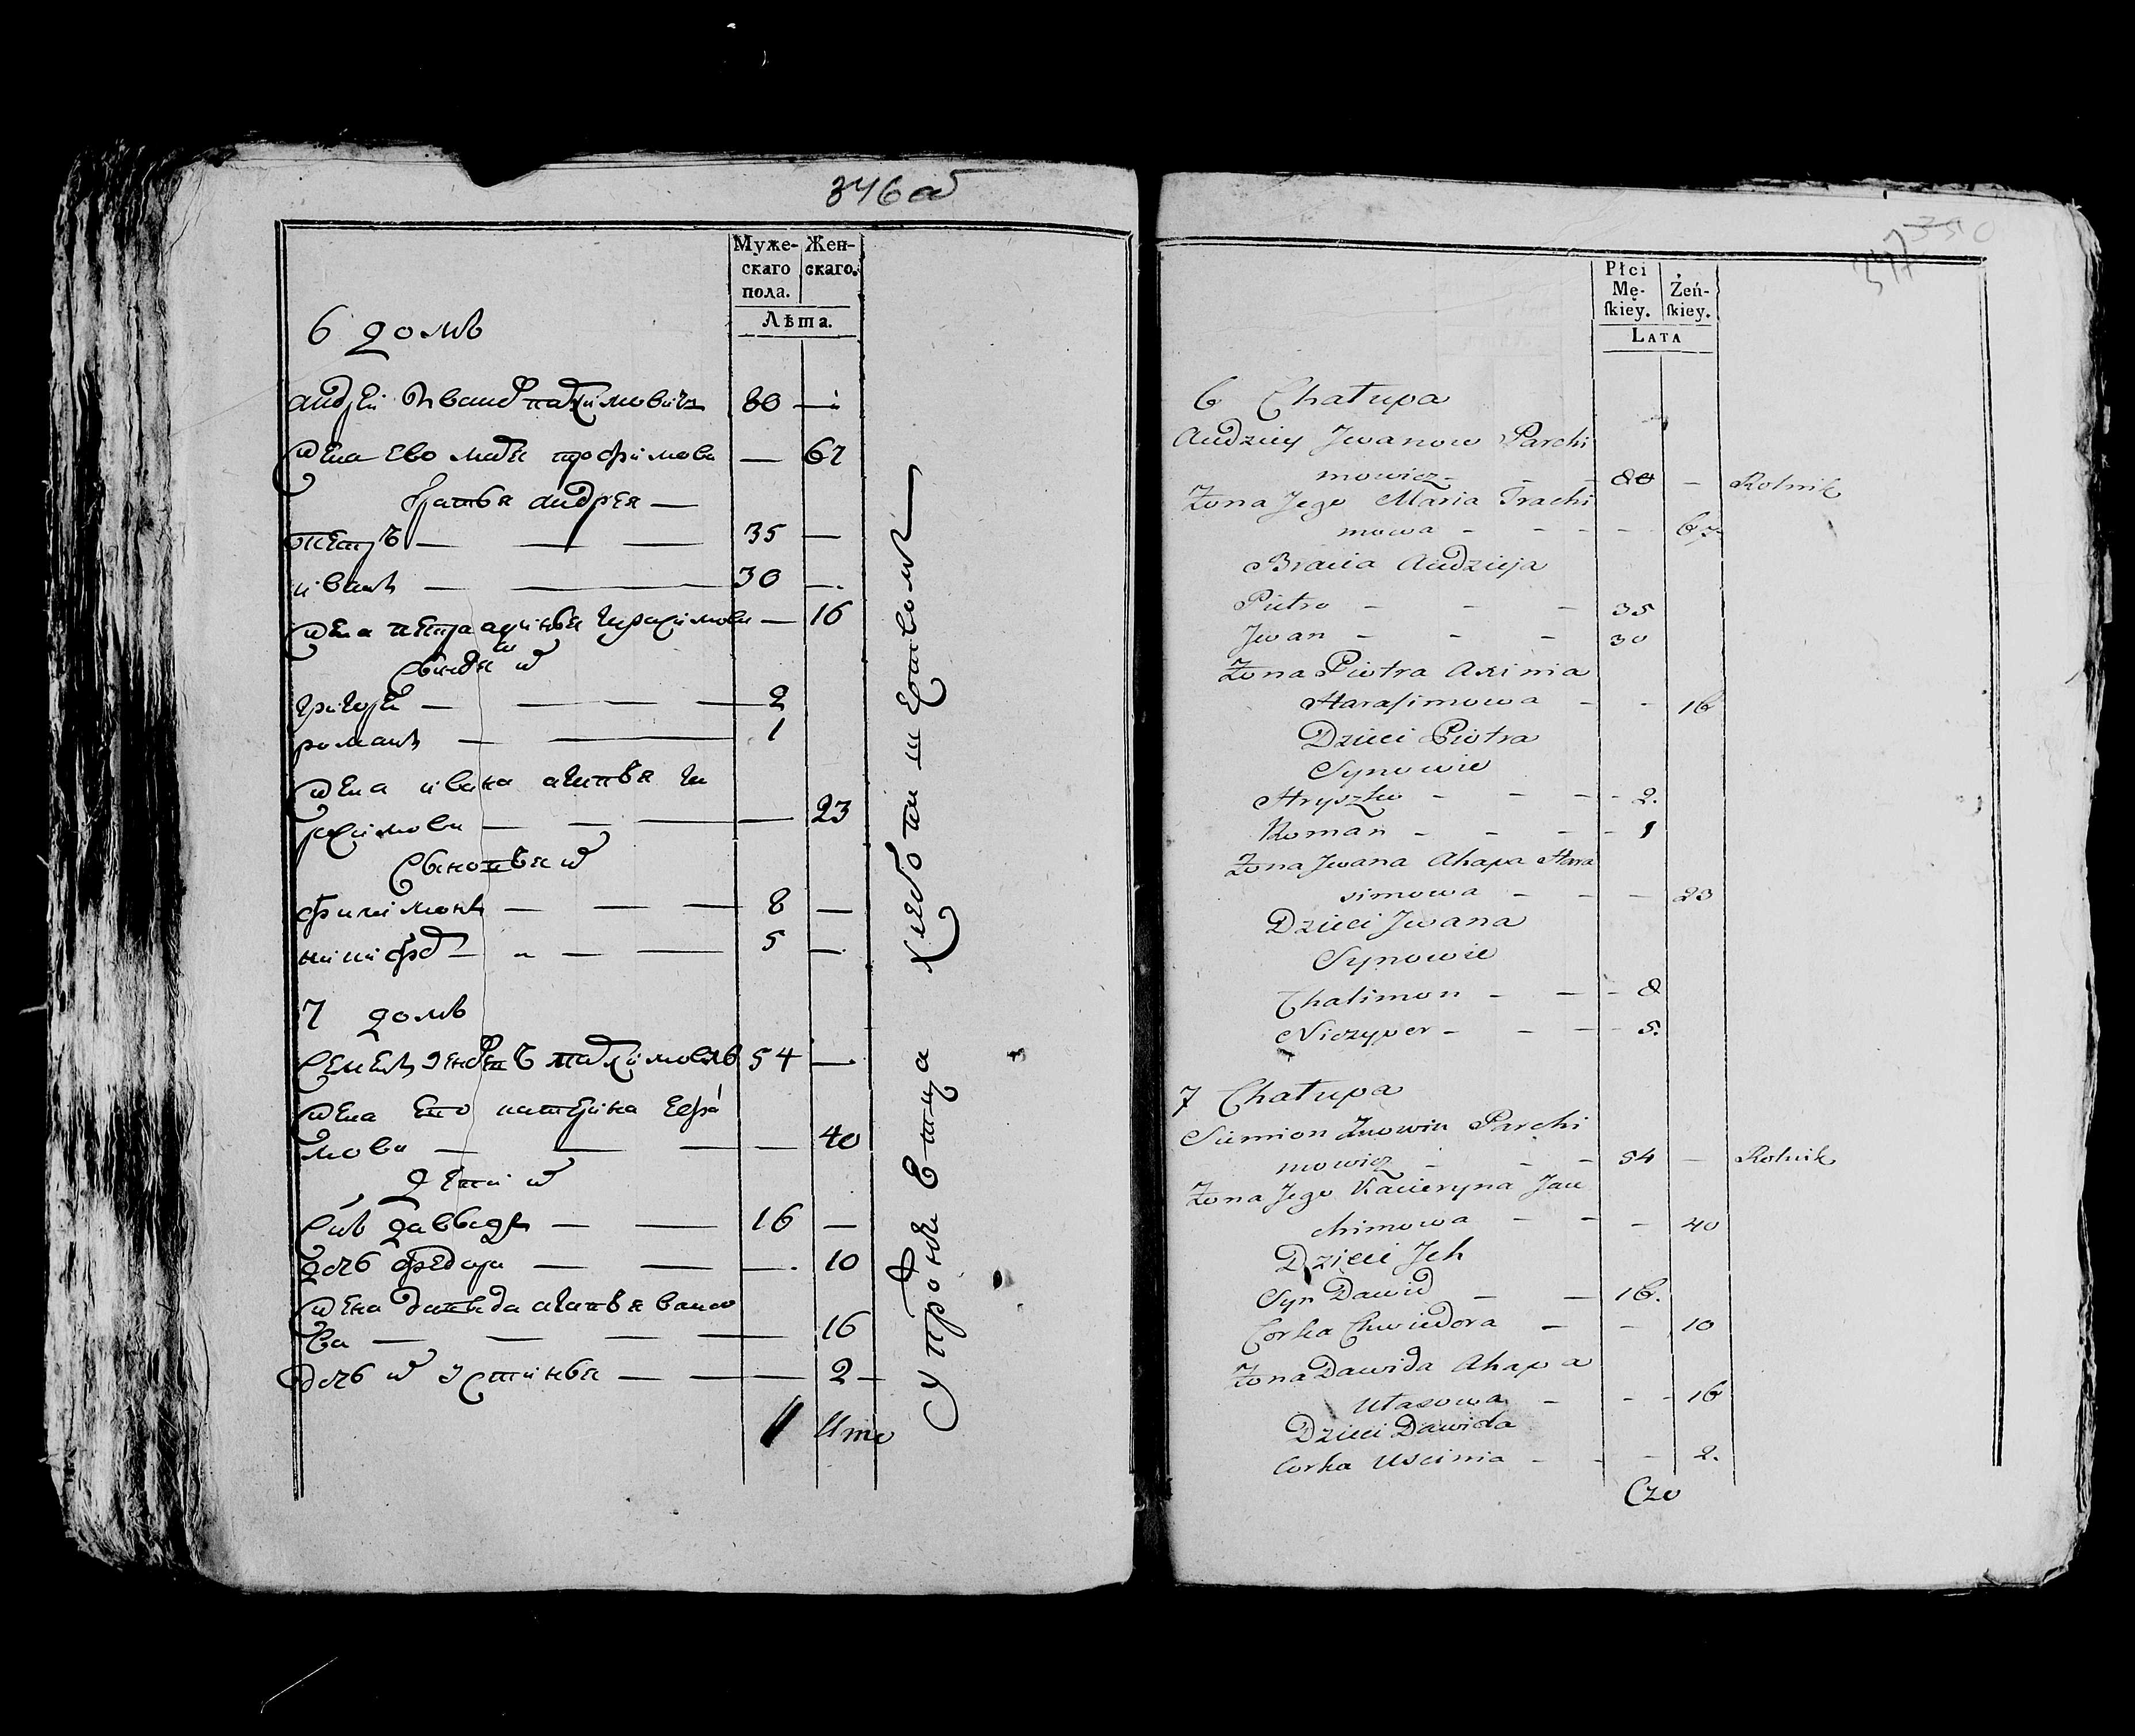 346 об
Муже-
скаго
пола.
Жен-
скаго.
Лѣта.
6 домъ
андрей Иванов пархимович 80 —
жена ево маря трофимова — 67
братья андрея —
петръ — — — 35 —
иванъ — — 30 —
жена петра аринья герасимова — 16
сыновья их
григорей — — — 2
романъ — — 1
жена ивана агапья ге
расимова — — — — 23
сыновья их
филимонъ — — — 8 —
никифор — — — 5 —
7 домъ
семенъ пархимовичъ 54 —
жена ево катерина ефи
мова — — — — 40
дети их
синъ давыдъ — — 16 —
дочь федора — — — 10
жена давыда агапья власо
ва — — — — 16
дочь их устинья — — — 2 —
упражняется хлебопашерством
350
347
Płci
Mę-
ſkiey.
Żeń-
ſkiey.
LATA
6 Chałupa
Andziey Jwanow Parchi
mowicz - - 80 - Rolnik
Żona Jego Maria Trachi
mowa - - - - 67
Bracia Andzieja
Pietro - - - 35
Jwan - - - 30
Żona Piotra Axinia
Harasimowa - - 16
Dzieci Piotra
Synowie
Hryszko - - - 2.
Roman - - - 1
Żona Jwana Ahapa Hara
simowa - - - 23
Dzieci Jwana
Synowie
Chalimon - - - 8
Niczyper - - - 5.
7 Chałupa
Siemion Parchi
mowicz - - - 54 - Rolnik
Żona Jego Kacieryna Jau
chimowa - - - 40
Dzieci Jch
Syn Dawid - - 16.
Corka Chwiedora - - 10
Żona Dawida Ahapa
Ułasowa - - - 16
Dzieci Dawida
Corka Uscinia - - - 2.
Czo